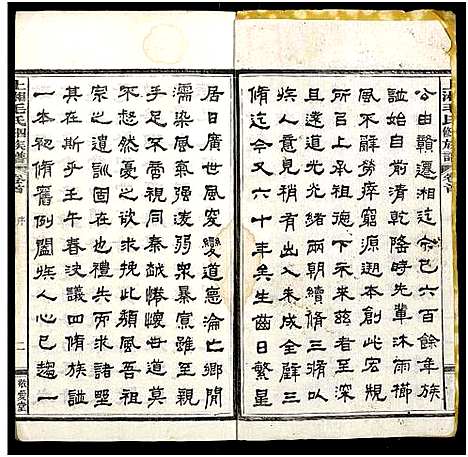 上湘毛氏修族譜 卷首
公由贛遷湘迄今已六百餘年族
諡始自前清乾隆時先輩沐雨櫛
風不辭勞瘁窮源遡本創此宏規
所㠯上承祖德下示來茲者至深
且遠道光光緒兩朝續脩三脩以
族人意見未盡一致未成全璧三
脩迄今又六十年矣生齒日繁星
居日廣世風丕變道惪淪亡鄉閭
濡染風氣日衰強凌弱眾暴寡雖至親
手足不啻視同秦越慘懷世道莫
不愀然憂之欲求挽此頹風吾祖
宗之遺訓固在也禮失而求諸譜
其在斯乎王午春決議四脩族譜
一本初脩舊例闔族人心已趨一
上湘毛氏四修族譜 卷首
序
二
敬愛堂